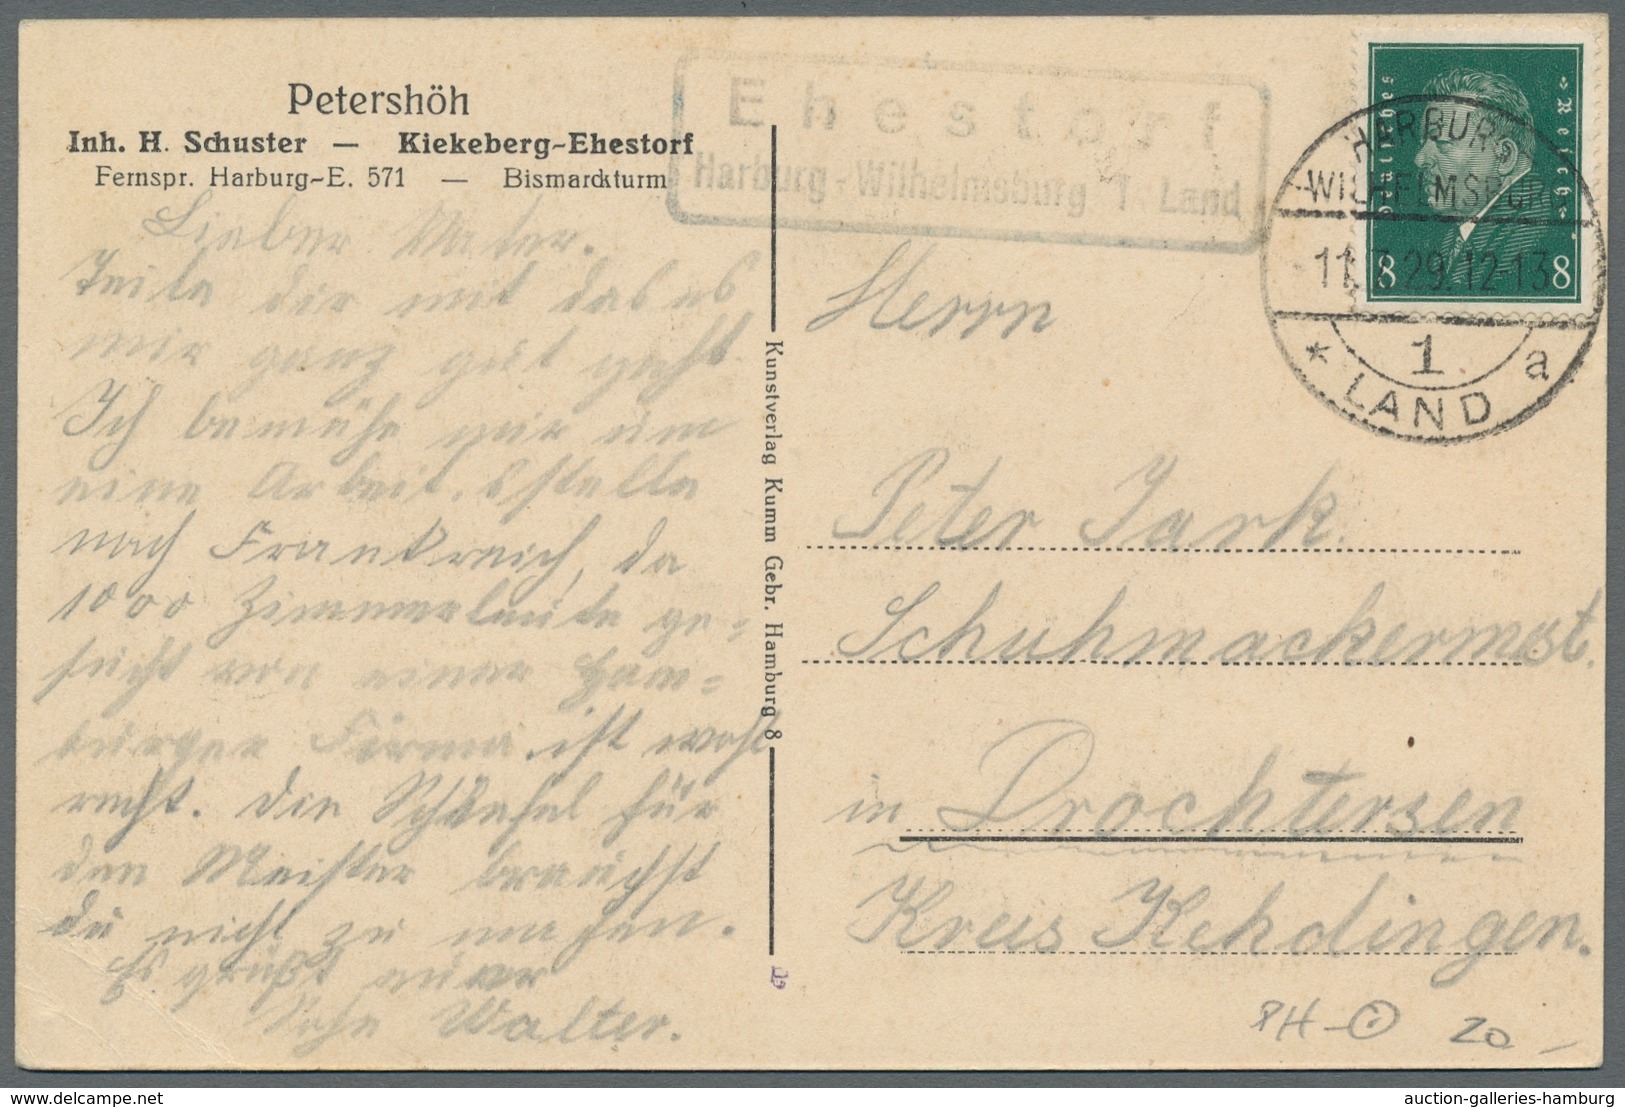 Petershöh
Inh. H. Schuster — Kiekeberg-Ehestorf
Fernspr. Harburg-E. 571 — Bismarckturm
Ehestorf
Harburg-Wilhelmsburg 1 Land
Deutsches Reich
8 8
HARBURG
WILHELMSBURG
11. 29.12-13
1 a
* LAND
Lieber Vater.
Teile dir mit das es
mir ganz gut geht
Ich bemühe mir um
eine Arbeitsstelle
nach Frankreich, da
1000 Zimmerleute ge=
sucht von einer Ham=
burger Firma. ist wohl
recht. Die für
den Meister brauchst
du nicht zu machen.
Es grüßt euer
Sohn Walter.
Kunstverlag Kumm Gebr. Hamburg 8
Herrn
Peter Jark.
Schuhmachermst.
in Drochtersen
Kreis Kehdingen.
PH-
20 -
delcampe.net
auction-galleries-hamburg